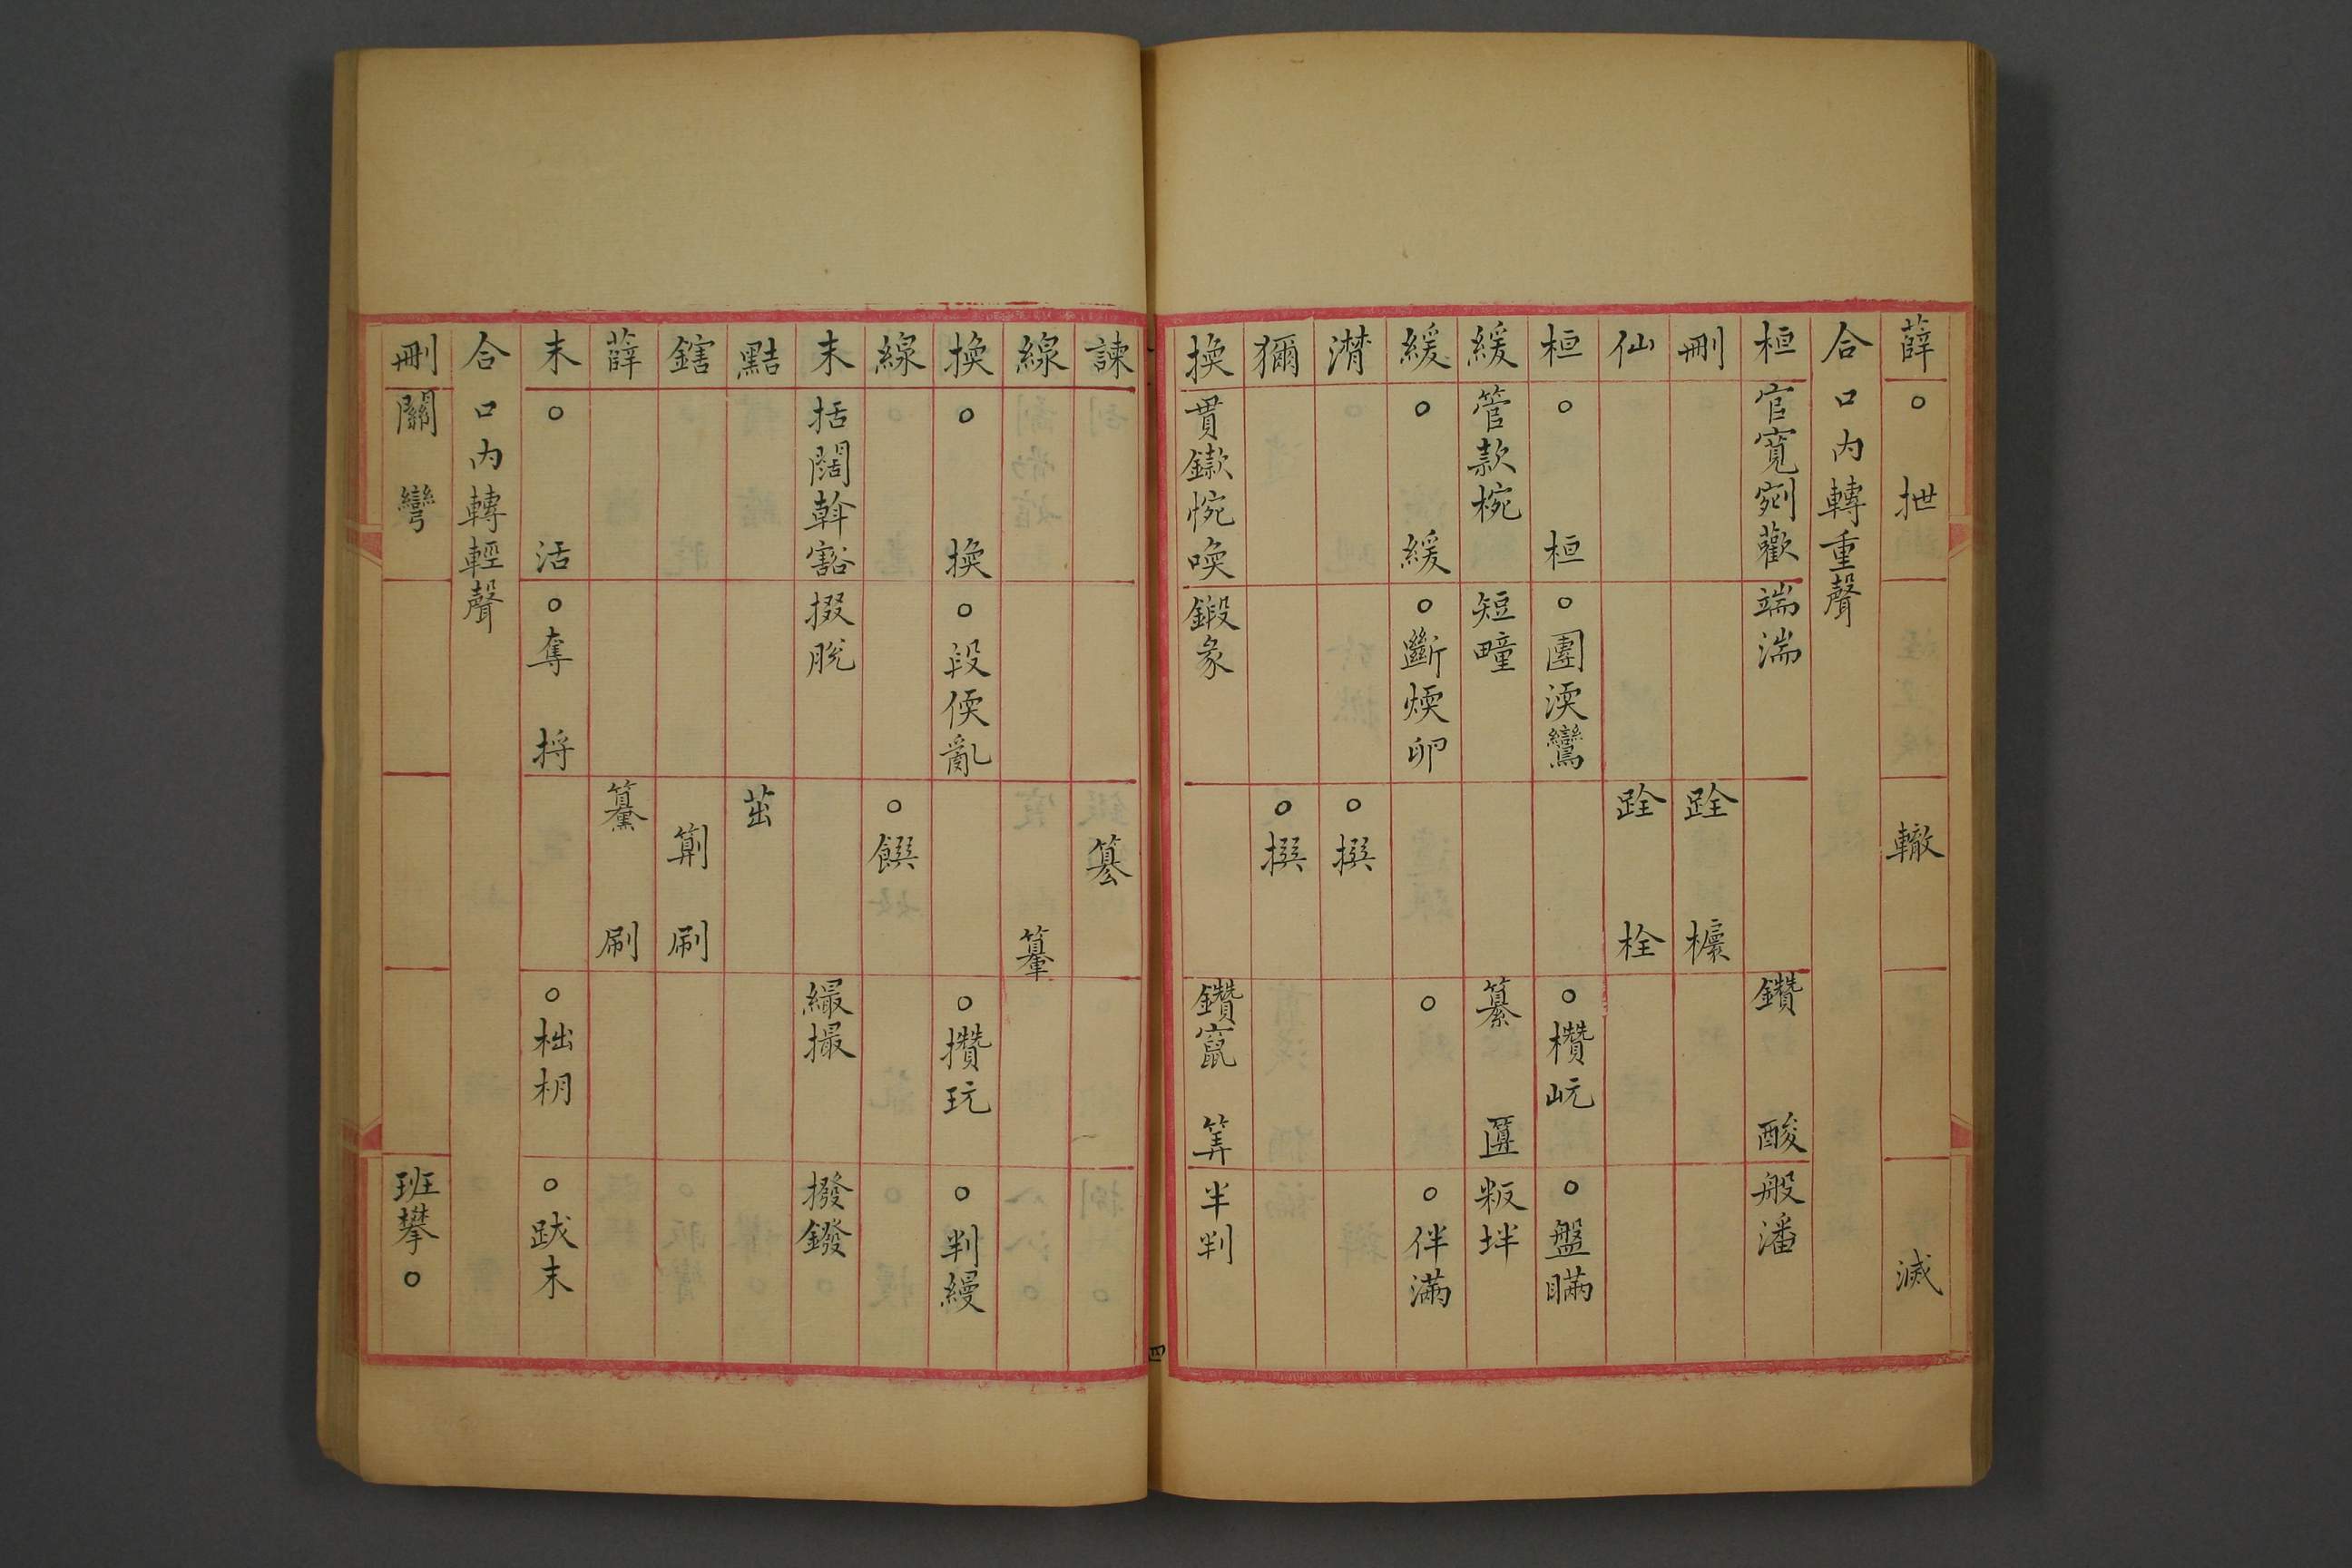 薛 ○ 抴 轍 滅
合口內轉重聲
桓 官寬剜歡 端湍 鑽 酸 般潘
刪 跧 櫦
仙 跧 栓
桓 ○ 桓 ○團渜鸞 ○欑岏 ○盤瞞
緩 管款椀 短疃 纂 匴 粄坢
緩 ○ 緩 ○斷煗卵 ○ ○伴滿
潸 ○撰
獮 ○撰
換 貫鏉惋喚 鍛彖 鑽竄 筭 半判
四
諫 篡
線 䉵
換 ○ 換 ○段偄亂 ○攢玩 ○判縵
線 ○饌
末 括闊斡豁 掇脫 繓撮 撥鏺
黠 茁
鎋 刷
薛 刷
末 ○ 活 ○奪 捋 ○柮枂 ○跋末
合口內轉輕聲
刪 關 彎 班攀○